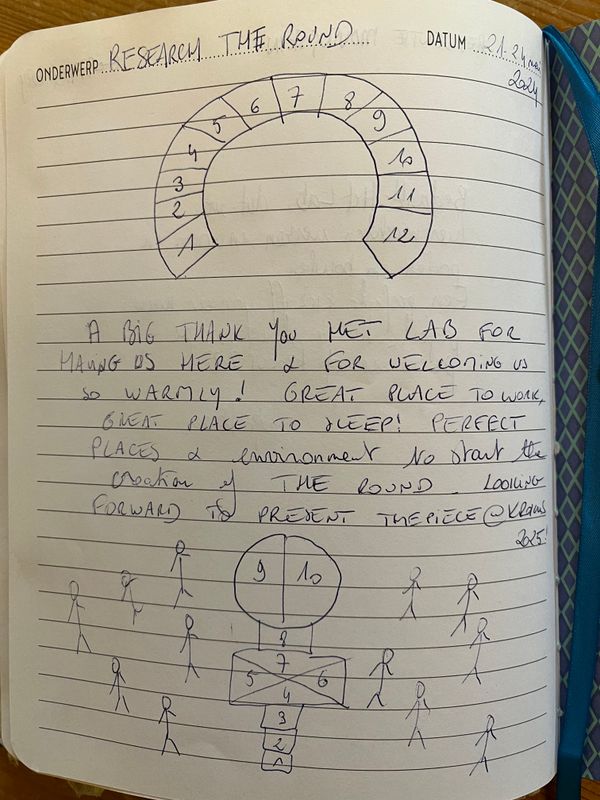 ONDERWERP RESEARCH THE ROUND DATUM 21-24 mei
2024
1 2 3 4 5 6 7 8 9 10 11 12
A BIG THANK YOU HET LAB FOR
HAVING US HERE & FOR WELCOMING US
SO WARMLY! GREAT PLACE TO WORK,
GREAT PLACE TO SLEEP! PERFECT
PLACES & environment to start the
creation of THE ROUND. LOOKING
FORWARD TO PRESENT THE PIECE @KROKUS
2025!
9 10
8
7
5 6
4
3
2
1